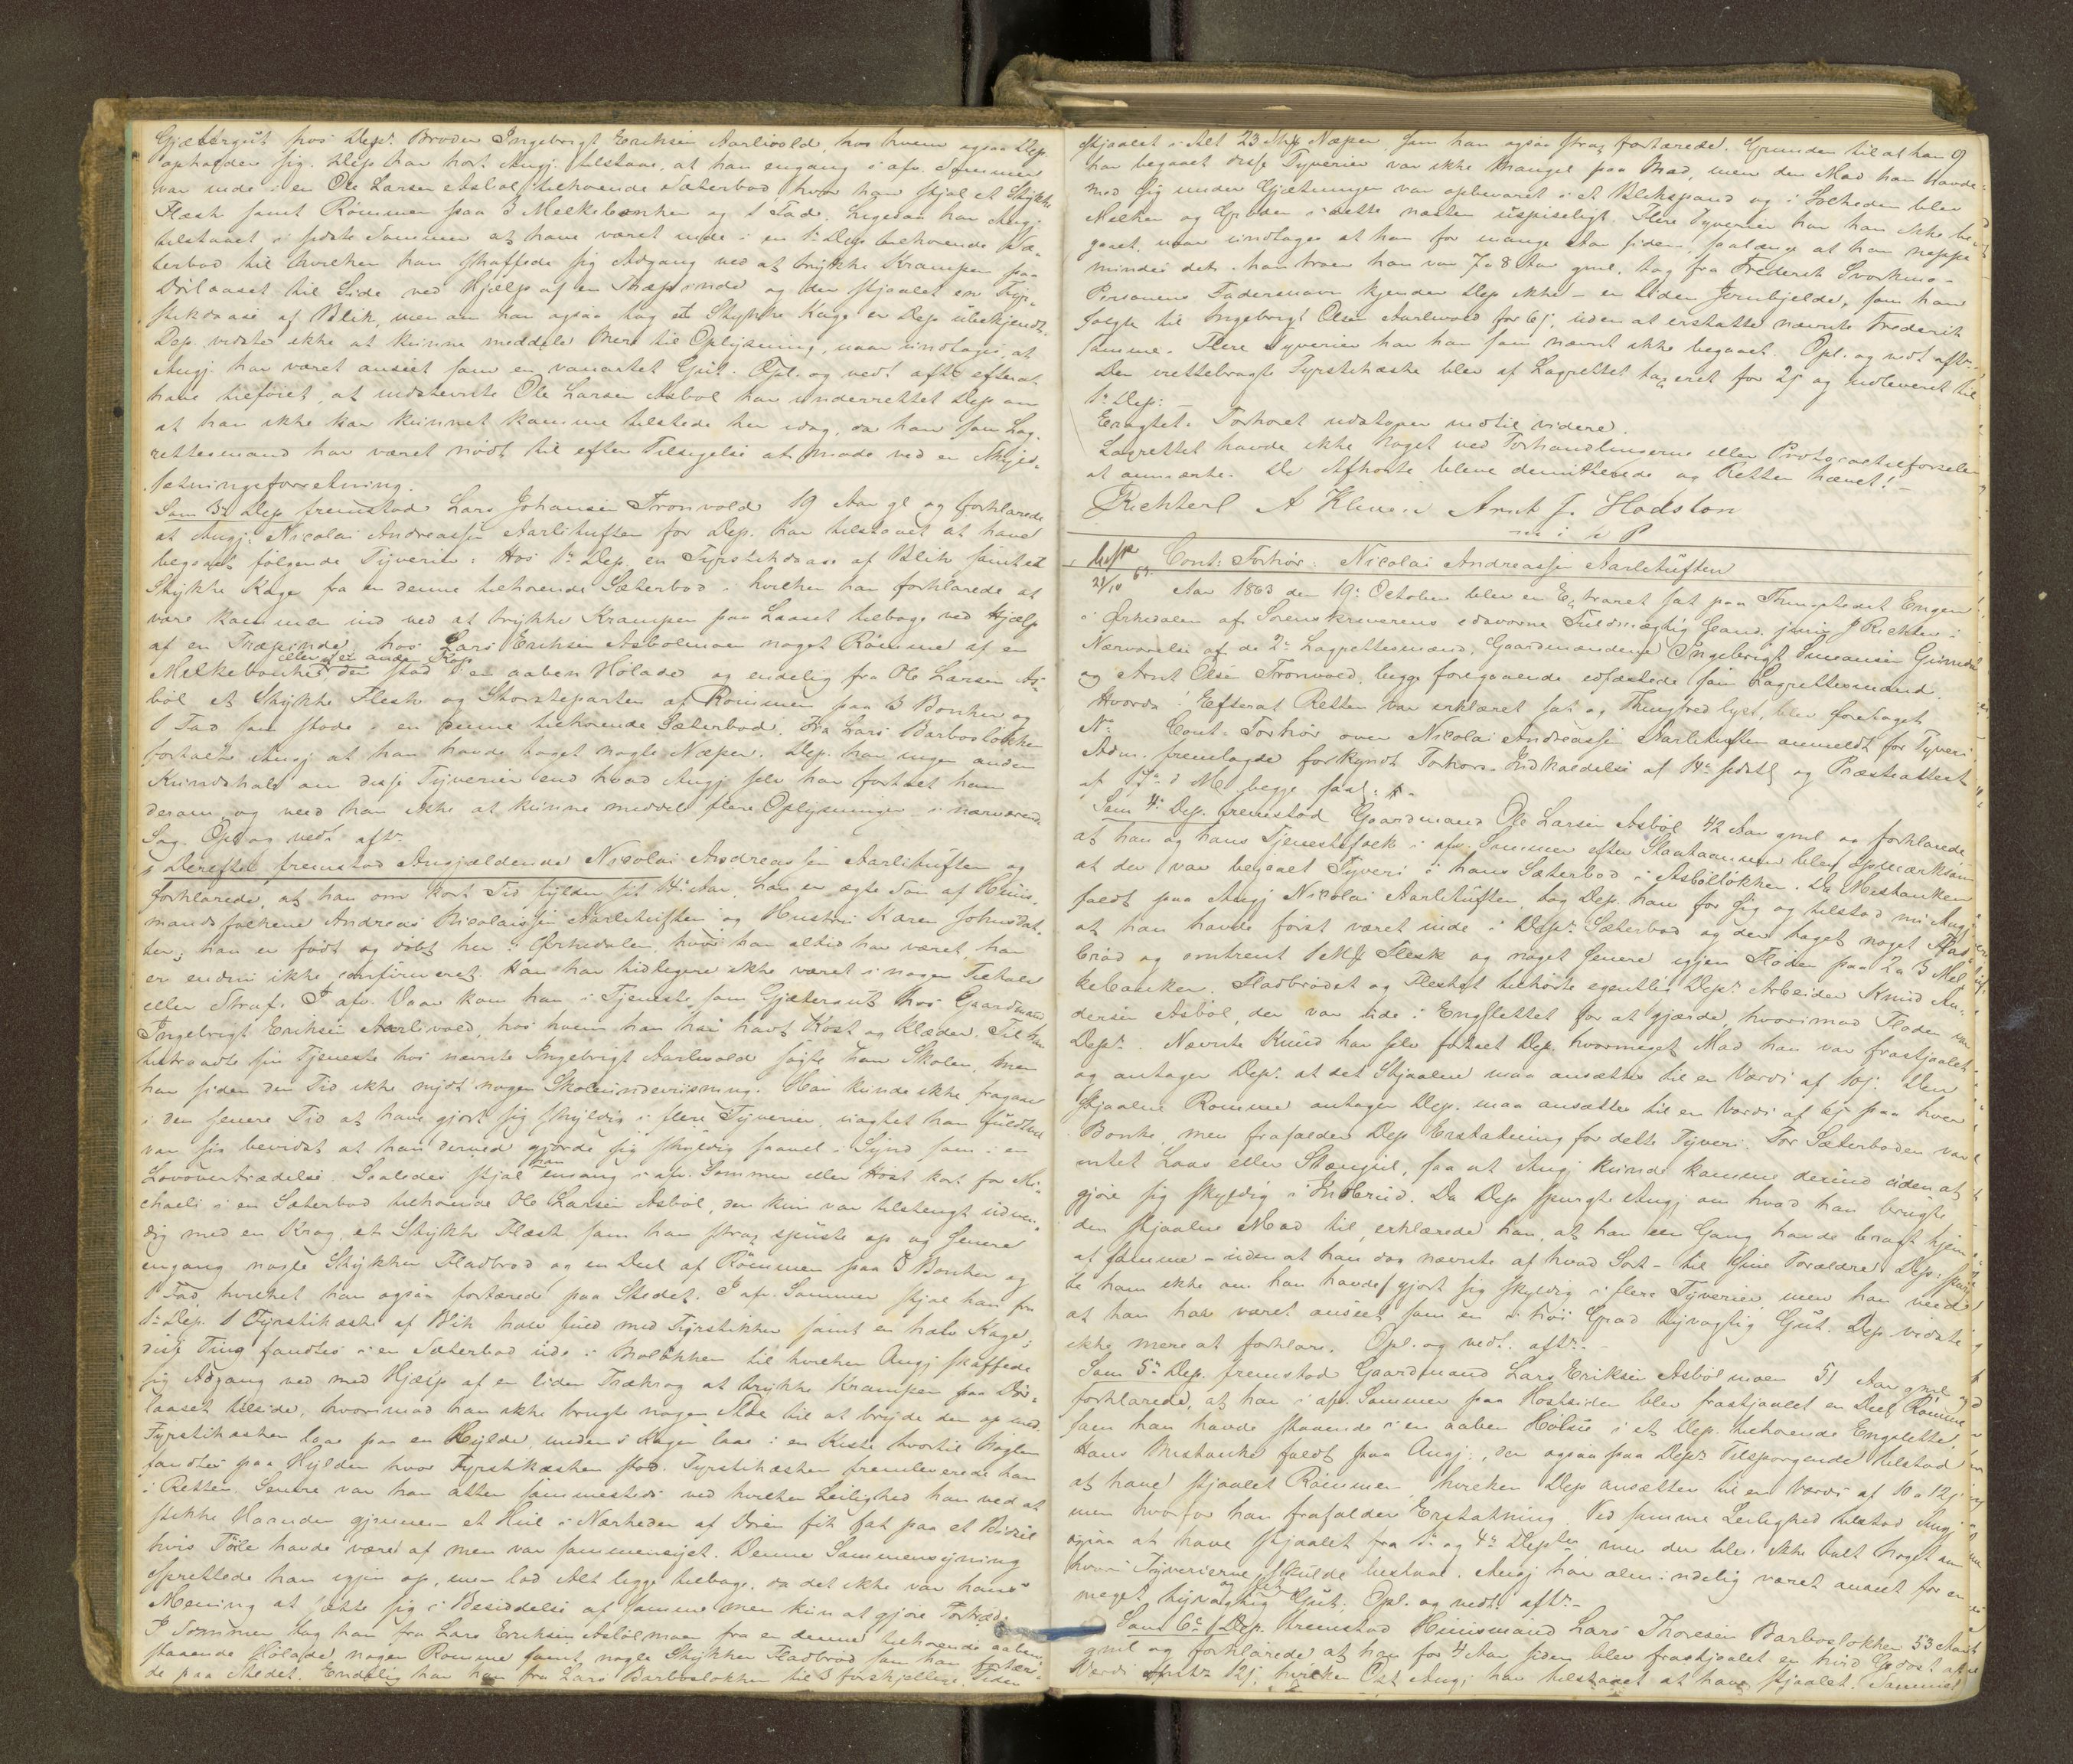 Gjætergut hos Dep: Broder Ingebrigt Eriksen Aarlivold, hos hvem ogsaa Dep
opholder sig. Dep har hørt Angj. tilstaae, at han engang i afv. Sommer
var inde i en Ole Larsen Asbøl tilhørende Sæterbod hvor han stjal et Stykke
Flæsk samt Rømmen paa 3 Melkebonker og 1 Fad. Ligesaa har Angj.
tilstaaet i sidste Sommer at have været inde i en 1ste Dep tilhørende Sæ-
terbod til hvilken han skaffede sig Adgang ved at trykke Krampen paa
Dørlaaset til Side ved Hjælp af en Træpinde og der stjaalet en Fyr-
stikdaase af Blik, men om han ogsaa tog et Stykke Kage er Dep ubekjendt.
Dep. vidste ikke at kunne meddele Mere til Oplysning, naar undtages, at
Angj. har været anseet som en vanartet Gut. Opl. og vedt. aftr. efterat
have tilføiet, at indstevnte Ole Larsen Asbøl har underrettet Dep om
at han ikke har kunnet komme tilstede her idag, da han som Lag-
rettesmand har været nødt til efter Tilsigelse at møde ved en
sætningsforretning.
Som 3die Dep fremstod Lars Johansen Tronvold 19 Aar gl og forklarede
at Angj. Nicolai Andreassen Aarlituften for Dep. har tilstaaet at have
begaaet følgende Tyverier: Hos 1ste Dep. en Fyrstikdaase af Blik samt et
Stykke Kage fra en denne tilhørende Sæterbod i hvilken han forklarede at
være kommen ind ved at trykke Krampen paa Laaset tilbage ved Hjælp
af en Træpinde, hos Lars Eriksen Asbølmoen noget Rømme af en
Melkebonke eller af et andet Kop der stod i en aaben Hølade og endelig fra Ole Larsen As-
bøl et Stykke Flesk og Størsteparten af Rømmen paa 3 Bonker og
1 Fad som stode i en denne tilhørende Sæterbod. Fra Lars Barbosløkken
fortalte Angj at han havde taget nogle Næper. Dep. har ingen anden
Kundskab om disse Tyverier end hvad Angj selv har fortalt ham
derom, og veed han ikke at kunne meddele flere Oplysninger i nærværende
Sag. Opl og vedt. aftr.
Derefter fremstod Angjældende Nicolai Andreassen Aarlituften og
forklarede, at han om kort Tid fylder sit Aar, han er ægte Søn af Huus-
mandsfolkene Andreas Nicolaissen Aarlituften og Hustru Karen Johnsdat-
ter; han er født og døbt her i Ørkedalen, hvor han altid har været, han
er endnu ikke confirmeret. Han har tidligere ikke været i nogen Tiltale
eller Straf. I afv. Vaar kom han i Tjeneste som Gjætergut hos Gaardmand
Ingebrigt Eriksen Aarlivold, hos hvem han har havt Kost og Klæder. Til han
tiltraadte sin Tjeneste hos nævnte Ingebrigt Aarlivold søgte han Skolen, men
har siden den Tid ikke nydt nogen Skoleundervisning. Han kunde ikke fragaae
i den senere Tid at have gjort sig skyldig i flere Tyverier, uagtet han fuldtud
var sig bevidst at han derved gjorde sig skyldig saavel i Synd som i en
Lovovertrædelse. Saaledes stjal han engang i afv. Sommer eller Høst kort før Mi-
chaeli i en Sæterbod tilhørende Ole Larsen Asbøl, der kun var tilstengt udven-
dig med en Krog, et Stykke Flæsk som han strax spiste op og senere
engang nogle Stykker Fladbrød og en Deel af Rømmen paa 3 Bonker og
1 Fad, hvilket han ogsaa fortærede paa Stedet. I afv. Sommer stjal han fra
1ste Dep. 1 Fyrstikæske af Blik halv fyld med Fyrstikker samt en halv Kage;
disse Ting fandtes i en Sæterbod ude i Moløkken til hvilken Angj skaffede
sig Adgang ved med Hjælp af en liden Trækrog at trykke Krampen paa Dør-
laaset tilside, hvorimod han ikke brugte nogen Ilde til at bryde den op med.
Fyrstikæsken laae paa en Hylde, medens Kagen laae i en Kiste hvortil Nøglen
fandtes paa Hylden hvor Fyrstikæsken stod. Fyrstikæsken fremleverede han
i Retten. Senere var han atter sammesteds ved hvilken Leilighed han ved at
stikke Haanden gjennem et Hul i Nærheden af Døren fik fat paa et Bidsel
hvis Tøile havde været af men var sammensyet. Denne Sammensyning
sprettede han igjen op, men lod Alt ligge tilbage, da det ikke var hans
Mening at sætte sig i Besiddelse af samme men kun at gjøre Fortræd.
I Sommer tog han fra Lars Eriksen Asbølmoen fra en denne tilhørende aaben
staaende Hølade nogen Rømme samt nogle Stykker Fladbrød som han fortære-
de paa Stedet. Endelig har han fra Lars Barbosløkken til 3 forskjellige Tider
stjaalet i Alt 23 Stkr Næper som han ogsaa strax fortærede. Grunden til at han
har begaaet disse Tyverier var ikke Mangel paa Mad, men den Mad han havde
med sig under Gjætningen var opbevaret i et Blikspand og i Solheden blev
Melken og Grøden i dette næsten uspiseligt. Flere Tyverier har han ikke be-
gaaet, naar undtages at han for mange Aar siden, saalænge at han neppe
mindes det, han troer han var 7 a 8 Aar gml, tog fra Frederik Svorkmo -
Personens Fadersnavn kjender Dep ikke - en liden Jernbjelde, som han
solgte til Ingeborgt Olsen Aarlivold for 6 s, uden at erstatte nævnte Frederik
samme. Flere Tyverier har han som nævnt ikke begaaet. Opl. og vedt. aftr.
Den irettebragte Fyrstikæske blev af Lagrettet taxeret for 2 s og udleveret til
1ste Dep:
Eragtet. Forhøret udstaaer indtil videre.
Lagrettet havde ikke Noget ved Forhandlingerne eller Protocoltilførselen
at anmærke. De Afhørte bleve demitterede og Retten hævet! -
J Richter A Arnt J. Hodston
Cont: Forhør: Nicolai Andreassen Aarlituften
21/10 63.
Aar 1863 den 19: October blev en Extraret sat paa Thingstedet Engen
i Ørkedalen af Sorenskriverens edsvorne Fuldmægtig Cand. juris J Richter i
Nærværelse af de 2de Lagrettesmænd, Gaardmændene Ingebrigt Simonsen
og Arnt Olsen Tronvold, begge foregaaende edfæstede som Lagrettesmænd.
Hvorda: Efterat Retten var erklæret sat og Thingfred lyst, blev foretaget
No Cont: Forhør over Nicolai Andreassen Aarlituften anmeldt for Tyveri
Adm. fremlagde forkyndt Forhørs-Indkaldelse af 14de sidstl og Præsteattest
af d M begge saal:
Som 4de Dep. fremstod Gaardmand Ole Larsen Asbøl 42 Aar gml og forklarede
at han og hans Tjenestefolk i afv. Sommer efter Slaataannen blev opmærksom
at der var begaaet Tyveri i hans Sæterbod i Asbølløkken. Da Mistanken
faldt paa Angj Nicolai Aarlituften, tog Dep. ham for sig og tilstod nu Angj
at han havde først været inde i Dep: Sæterbod og der taget noget Flad-
brød og omtrent 1 Mk Flesk og noget senere igjen Fløden paa 2 a 3 Mel-
kebonker. Fladbrødet og Flesket tilhørte egentlig Dep: Arbeider Knud An-
dersen Asbøl, der var ude i Engslettet for at gjærde, hvorimod Fløden var
Dep: . Nævnte Knud har selv fortalt Dep. hvormeget Mad han var frastjaalet
og antager Dep: at det Stjaalne maa ansættes til en Værdi af 10 s. Den
stjaalne Rømme antager Dep. maa ansættes til en Værdi af 6 s paa hver
Bonke, men frafalder Dep Erstatning for dette Tyveri. For Sæterboden var
intet Laas eller Stængsel, saa at Angj kunde komme derind uden at
gjøre sig skyldig i Indbrud. Da Dep spurgte Angj om hvad han brugte
den stjaalne Mad til, erklærede han, at han een Gang havde bragt hjem
af samme - uden at han dog nævnte af hvad Sort - til sine Forældre. Dep: spurg-
te ham ikke om han havde gjort sig skyldig i flere Tyverier, men han veed
at han har været anseet som en i høi Grad tyvagtig Gut. Dep. vidste
ikke mere at forklare. Opl. og vedt. aftr. -
Som 5te Dep. fremstod Gaardmand Lars Eriksen Asbølmoen 51 Aar gml og
forklarede, at han i afv. Sommer paa Høstsiden blev frastjaalet en Deel Rømme
som han havde staaende i en aaben Høladе i et Dep. tilhørende Engslette.
Hans Mistanke faldt paa Angj., der ogsaa paa Dep: Tilspørgende tilstod
at have stjaalet Rømmen hvilken Dep ansætter til en Værdi af 10 a 12 s
men hvorfor han frafalder Erstatning. Ved samme Leilighed tilstod Angj
ogsaa at have stjaalet fra 1ste og 4de Depten, men der blev ikke talt Noget om
hvori Tyverierne skulde bestaae. Angj har almindelig været anseet for en
meget tyvagtig Gut. Opl. og vedt. aftr. -
Som 6te Dep. fremstod Huusmand Lars Thoresen Barbosløkken 53 Aar
gml og forklarede at han for 4 Aar siden blev frastjaalet en hvid Gjedost af
Værdi 12 s, hvilken Ost Angj har tilstaaet at have stjaalet. Sammel